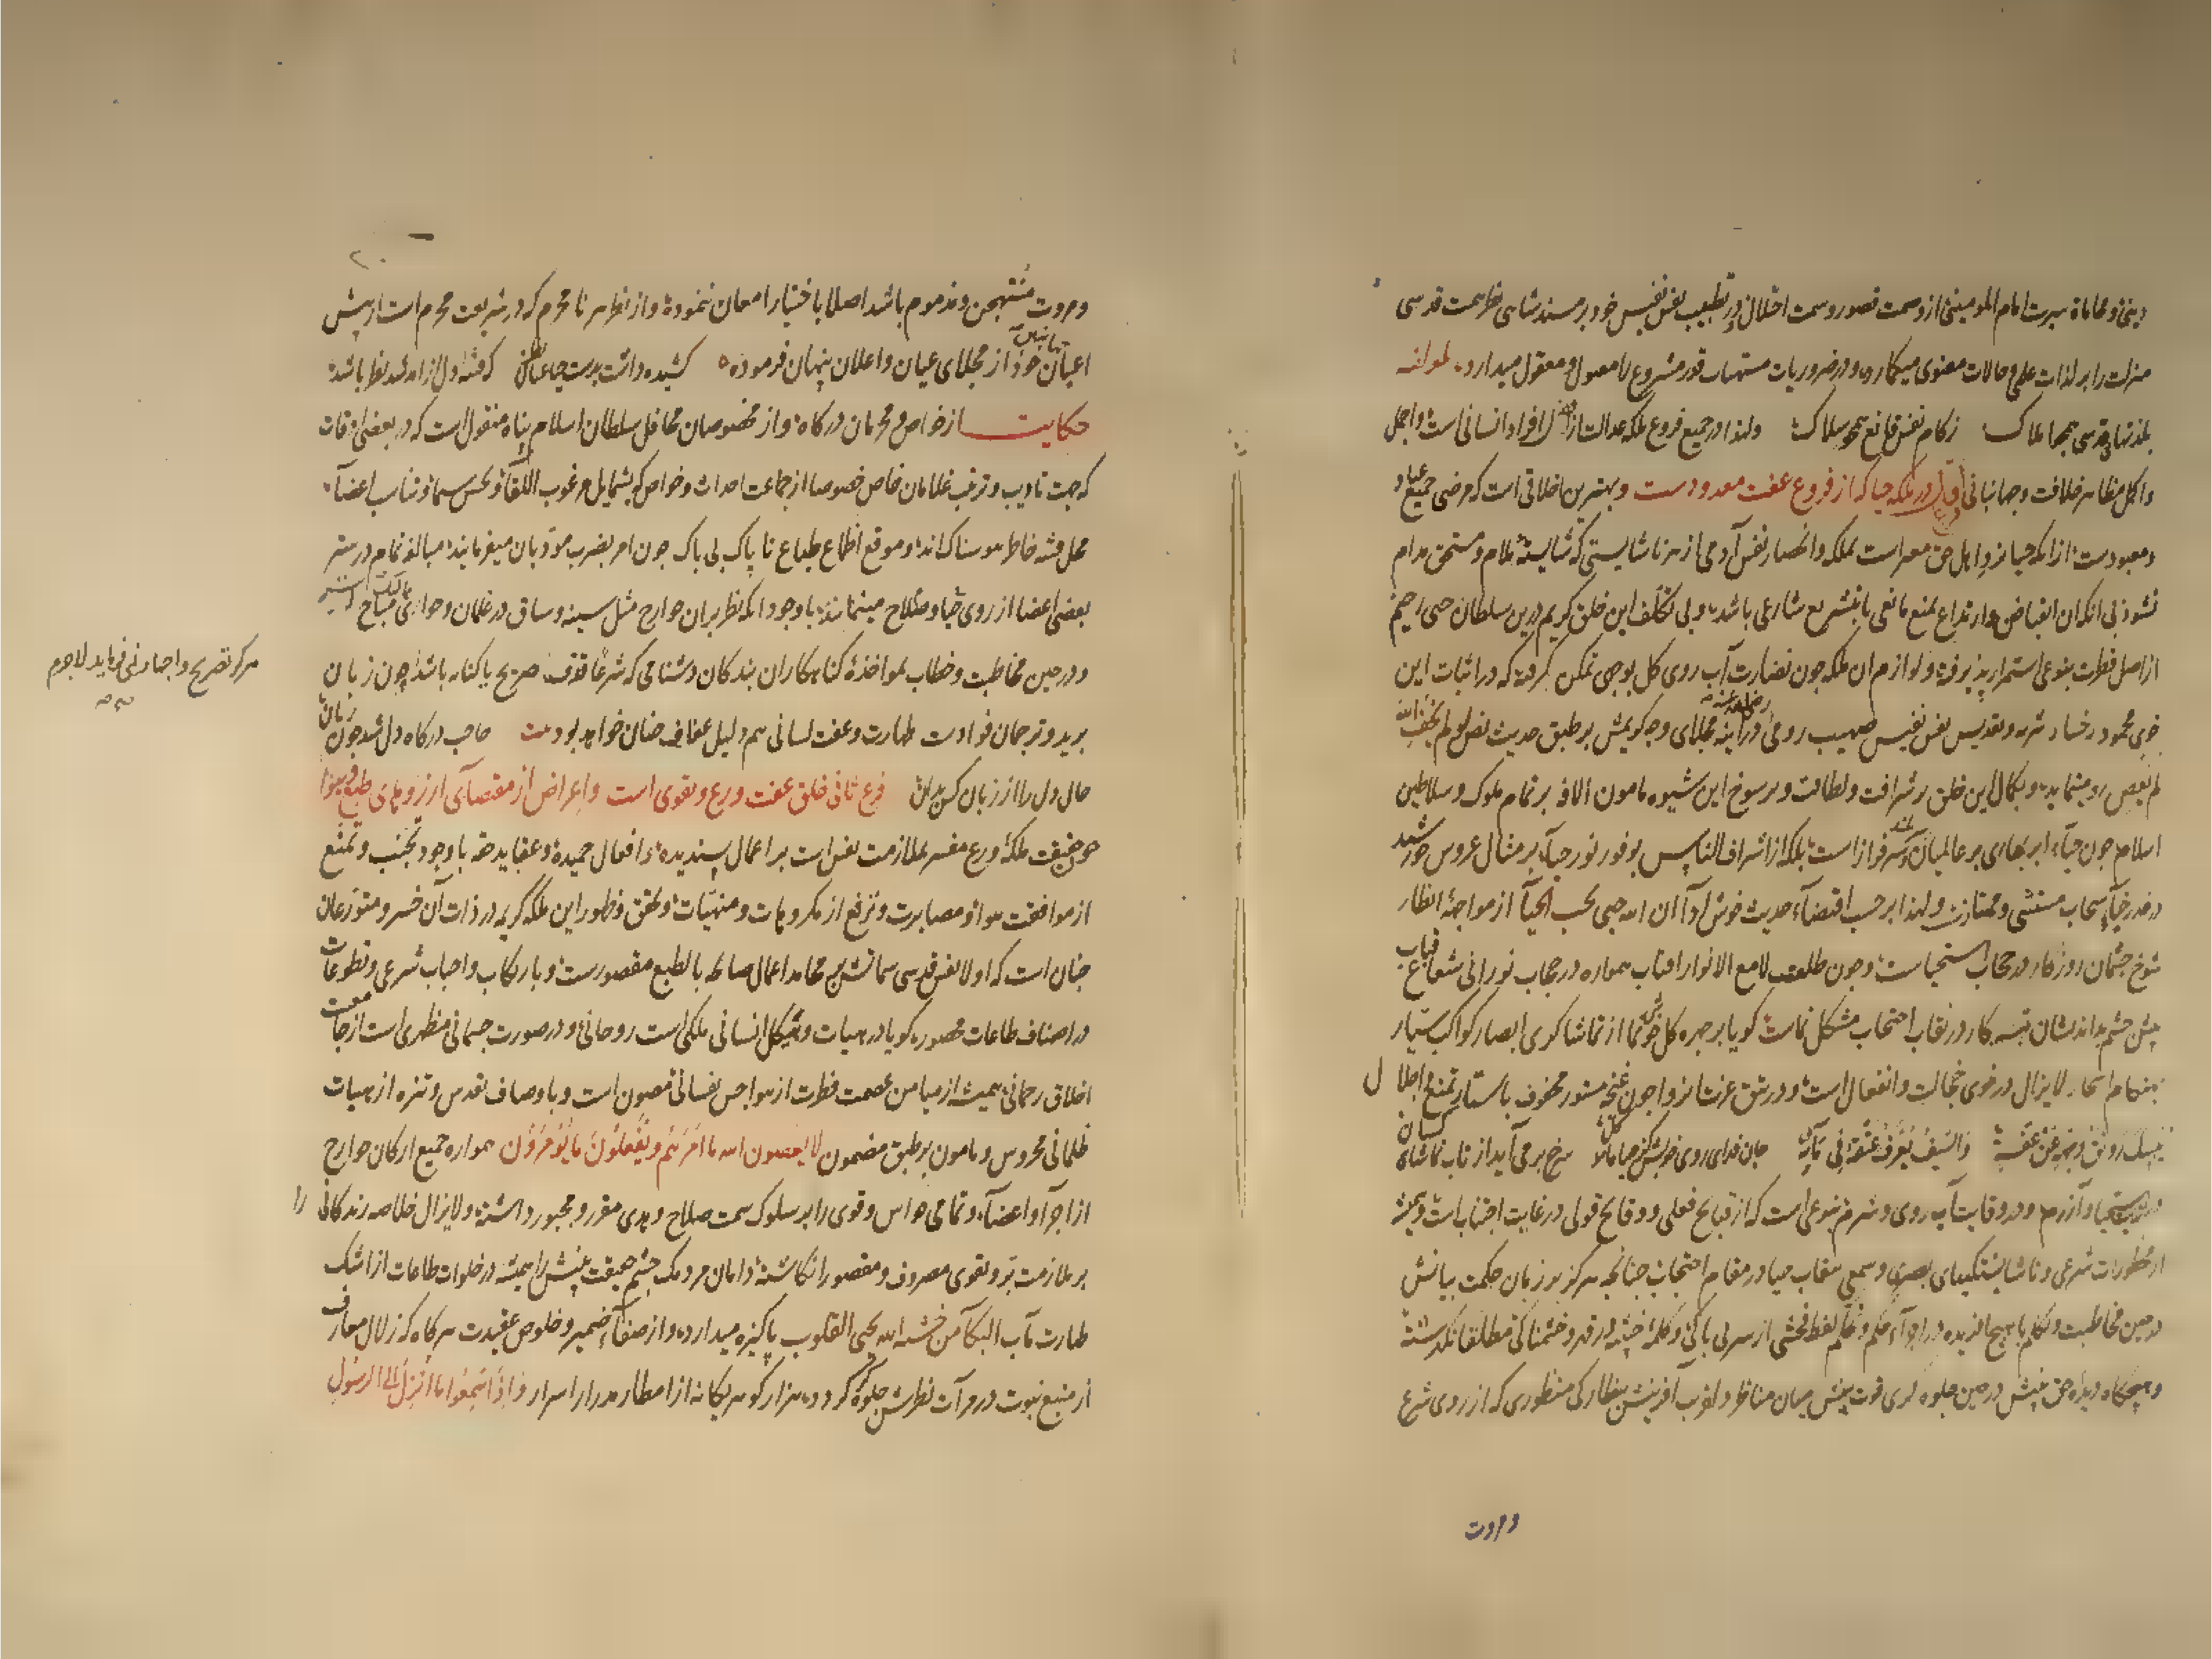 دینی و محاماة سیرت امام المومنین از وصمت قصور و سمت اختلال در تطییب نفس نفیس خود بر مسند شناسی نظر همت قدسی
منزلت را بر لذات علمی و حالات معنوی میکمارد و در ضروریات مشتهیات قدر مشروع را معمول و معقول میدارد لمولفه
بلذتهای قدسی همچو املاک ز کام نفس قانع همچو سلاک ولهذا در جمیع فروع ملکه عدالت از افراد انسانی است و اجمل
و اکمل مظاهر خلافت و جهانبانی اول در ملکه حیا که از فروع عفت معدودست و بهترین اخلاقی است که مرضی جمیع عباد
و معبودست ازانکه حیا نزد اهل حق معبر است بملکه و انحصار نفس آدمی از هر ناشایستی که شایسته ملام و مستحق مدام
نشود بی انکه ان انقباض و ارتداع بمنع مانعی یا بتشریع شارعی باشد و بی تکلف این خلق کریم درین سلطان حیی رحیم
از اصل فطرت بنوعی استمرار پذیرفته و لوازم ان ملکه چون نضارت آب روی کل بوجهی تمکن گرفته که در اثبات این
خوی محمود رخسار شریه و تقدیس نفس نفیس صهیب رومی رضی الله عنه در آینه مجلای وجه کویمش بر طبق حدیث نص لو لم یخف الله
لم یعص رو مینماید و بکمال این خلق پر شرافت و لطافت و برسوخ این شیوه مامون الافه بر تمام ملوک و سلاطین
اسلام چون حیاء ابر بهاری بر عالمیان سرفراز است بلکه از اشراف الناس بوفور نور حیا بر مثال عروس خورشید
در خدر حیاء سحاب مستثنی و ممتازست ولهذا بر حسب اقتضاء حدیث خوش ادا ان الله حیی یحب الحیآ از مواجهه انظار
شوخ چشمان روزکار در حجاب استحیاست و چون طلعت لامع الانوار افتاب همواره در حجاب نورانی شعاع
پیش چشم بد اندیشان تبه کار در نقاب احتجاب مشکل نماست کویا بر چهره کل خوی نما از تماشا کری ابصار کواکب سیار
بهنکام اسحار لایزال در خوی خجالت و انفعال است و در تتق عزت انزوا چون غنچه مستور محفوف باستار تمنع و اجلال
جان فدای روی خویش کز حیا مانند کل سرخ بر می آید از تاب تماشای کسان
در شیب استحیا و آزرم و در وقایت آب روی و شرم بنوعی است که از قبایح فعلی و وقایح قولی در غایت اجتناب است و همیشه
از محظورات شرعی و ناشایستگیهای بصری و سمعی بنقاب حیا در مقام احتجاب چنانچه هرکز بر زبان حکمت بیانش
در حین مخاطبت و تکلم با هیچ آفریده در اجرآء حکم و تحکم لفظ فحشی از سر بی باکی و کلمه خبیثه از قهر و خشمناکی مطلقا نکذشته
و هیچکاه دیده حق بینش در حین جلوه کری قوت بینش میان مناظر دلفریب آفرینش بنظارکی منظوری که از روی شرع
ومروت
۲۰
و مروت مستهجن و مذموم باشد اصلا باختیار امعان ننموده و از نظر هر نا محرم که در شریعت محرم است از پیش
اعیان خود از مجلای عیان و اعلان پنهان فرموده کشیده داشت بدست حیا عنان نظر کرفته دل از آمد شد نظر باشد
حکایت از خواص محرمان درکاه و از مخصوصان محافل سلطان اسلام پناه منقول است که در بعضی اوقات
که جهت تادیب و ترتیب غلامان خاص خصوصا از جماعت احداث و خواص که بشمایل مرغوب اللقاء و بحسن سیما و تناسب اعضآء
محل فتنه خاطر هوسناک اند و موقع اطماع طباع نا پاک بی باک چون امر بضرب مودبان میفرمایند مبالغه تمام در ستر
بعضی اعضا از روی حیا و صلاح مینمایند با وجود انکه نظر بران جوارح مثل سینه و ساق در غلمان و جواری مباح است
و در حین مخاطبت و خطاب بمواخذه کناهکاران بندکان دشنامی که شرعا قذف صریح یا کنایه باشد چون زبان
هرکز تصریح و اجهار نمی فرماید لاجرم
صح
برید و ترجمان فوادست طهارت و عفت لسانی هم دلیل عفاف جنان خواهد بود بیت حاجب درکاه دل شد چون زبان
حال دل را از زبان کس بدان فرع ثانی خلق عفت ورع و تقوی است و اعراض از مقتضآی آرزوهای طبع و هوا
چون حقیقت ملکه ورع مفسر بملازمت نفس است بر اعمال پسندیده و افعال حمیده و عقاید حقه با وجود تجنب و تمنع
از موافقت هوا و مصابرت و ترفع از مکروهات و منهیات و تحقق و ظهور این ملکه کریمه در ذات آن خسرو متورعان
چنان است که اولا نفس قدسی سماتش بر محامد اعمال صالحه بالطبع مقصورست و بارتکاب واجبات شرعی و تطوعات
در اصناف طاعات محصور کویا در هیات و هیکل انسانی ملکی است روحانی و در صورت جسمانی مظهری است از جامعیت
اخلاق رحمانی همیشه از میامن عصمت فطرت از هواجس نفسانی مصون است و باوصاف تقدس و تنزه از هیات
ظلمانی محروس و مامون بر طبق مضمون لا یعصون الله ما امرهم و یفعلون ما یؤمرون همواره جمیع ارکان جوارح
از اجزآ و اعضآء و تمامی حواس و قوی را بر سلوک سمت صلاح و هدی مقرر و مجبور داشته و لایزال خلاصه زندکانی را
بر ملازمت بر و تقوی مصروف و مقصور انکاشته و دامان مردمک چشم حقیقت بینش را همیشه در خلوات طاعات از اشک
طهارت مآب البکآ من خشیة الله یحیی القلوب پاکیزه میدارد و از صفآء ضمیر و خلوص عقیدت هرکاه که زلال معارف
از منبع نبوت در مرآت نظرش جلوه کر کردد هزار کوهر یکانه از امطار مدرار اسرار و اذا سمعوا ما انزل الی الرسول